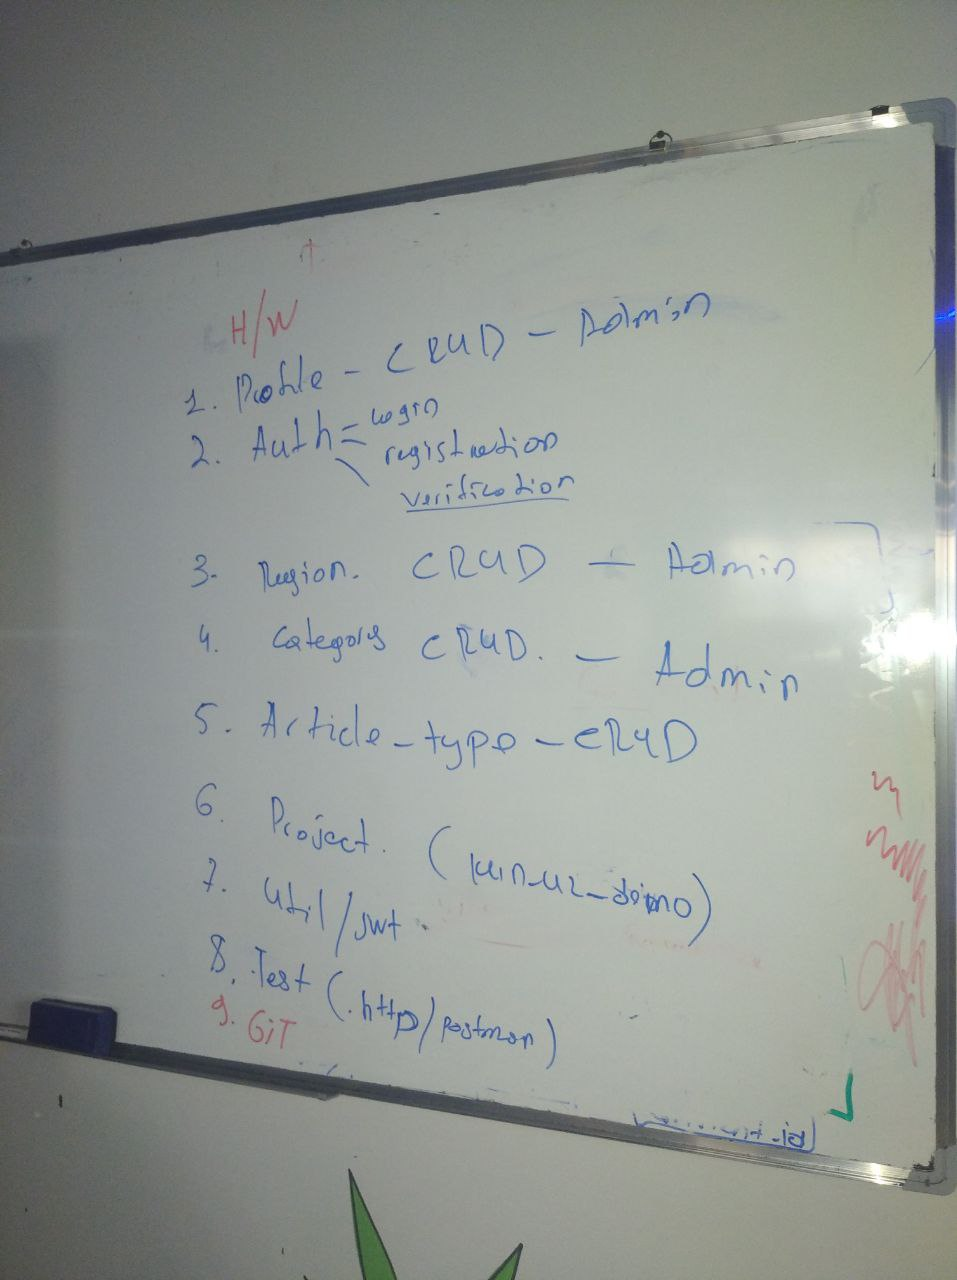 H/W
1. Profile - CRUD - Admin
2. Auth = login
registration
verification
3. Region. CRUD - Admin
4. Category CRUD. - Admin
5. Article - type - CRUD
6. Project. (kun-uz-demo)
7. Util/jwt.
8. Test (.http/postman)
9. GiT